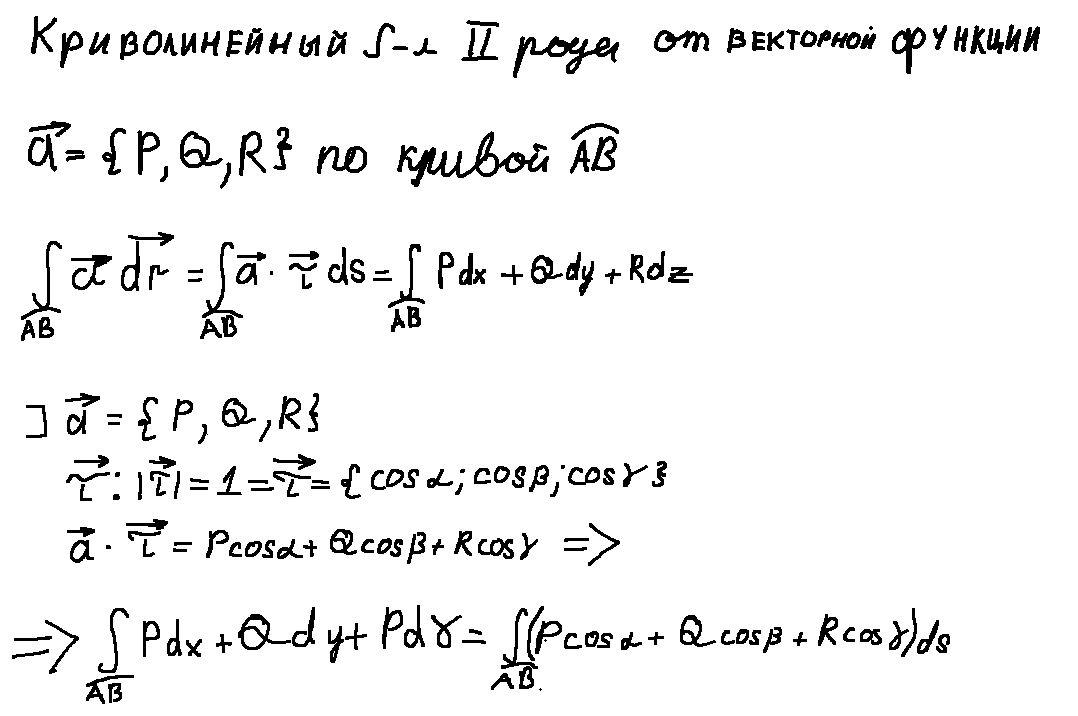 Криволинейный ∫-л II рода от векторной функции
\vec{a} = {P, Q, R} по кривой \overset{\frown}{AB}
∫_{\overset{\frown}{AB}} \vec{a} \vec{dr} = ∫_{\overset{\frown}{AB}} \vec{a} · \vec{τ} ds = ∫_{\overset{\frown}{AB}} Pdx + Qdy + Rdz
⊐ \vec{a} = {P, Q, R}
\vec{τ}: |\vec{τ}| = 1 = \vec{τ} = {cosα; cosβ; cosγ}
\vec{a} · \vec{τ} = Pcosα + Qcosβ + Rcosγ =>
=> ∫_{\overset{\frown}{AB}} Pdx + Qdy + Pdγ = ∫_{\overset{\frown}{AB}} (Pcosα + Qcosβ + Rcosγ)ds